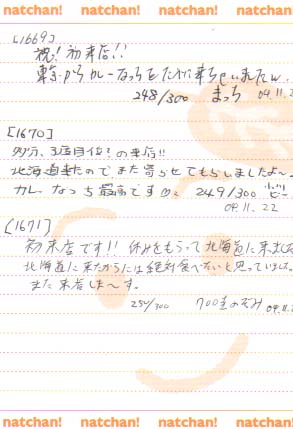 natchan! natchan! natchan! natchan!
[1669]
祝!初来店!!
東京からカレーなっちをたべに来ちゃいました。
248/300 まっち 04.11.2
[1670]
多分、3度目位?の来店!!
北海道来たのでまた寄らせてもらしましたよ〜
カレーなっち最高です 249/300
04.11.22
[1671]
初来店です!! 休みをもらって北海道に来ました
北海道に来たからには絶対食べたいと思っていました。
また来店しま〜す。
250/300 700
natchan! natchan! natchan! natchan!